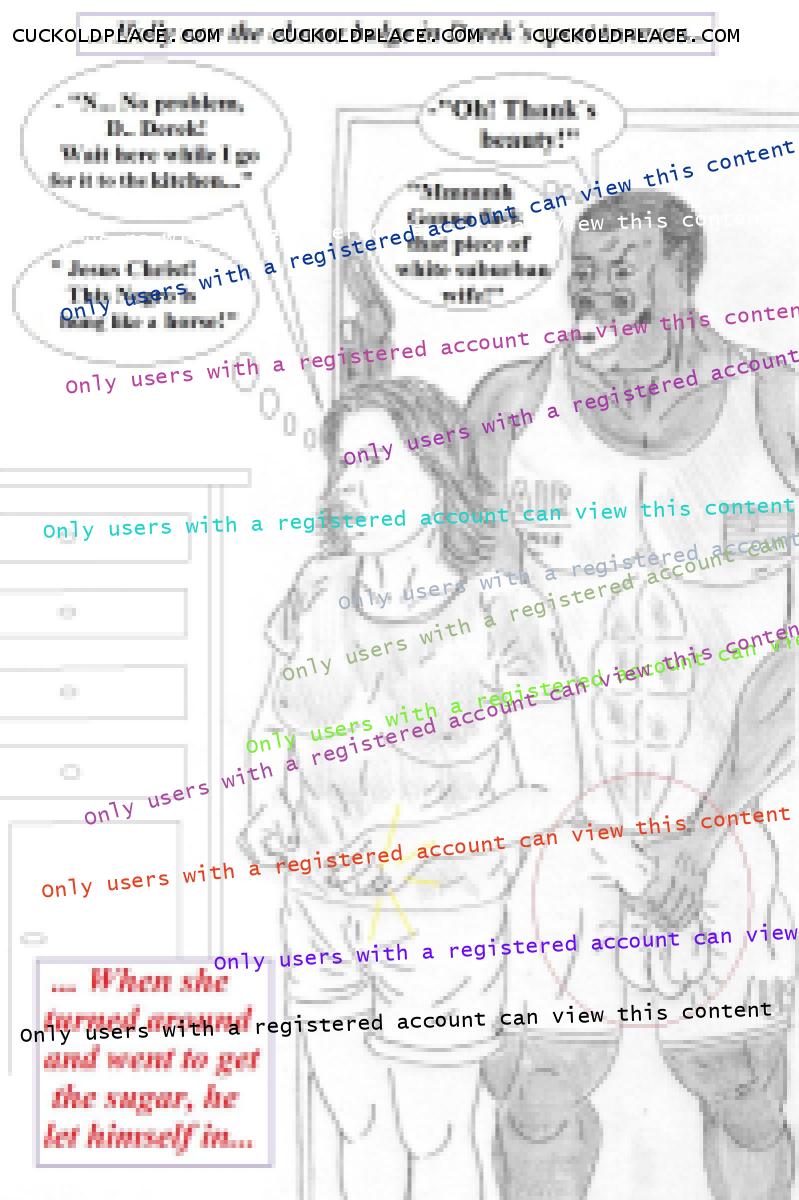 CUCKOLDPLACE.COM CUCKOLDPLACE.COM CUCKOLDPLACE.COM
- "N... No problem,
D.. Derek!
Wait here while I go
for it to the kitchen..."
-"Oh! Thank's
beauty!"
"Mmmmh
that piece of
white suburban
wife!"
" Jesus Christ!
This
hung like a horse!"
Only users with a registered account can view this content
Only users with a registered account can view this conten
Only users with a registered account
Only users with a registered account can view this content
Only users with a registered account
Only users with a registered account can
Only users with a registered account can vi
Only users with a registered account can view this conten
Only users with a registered account can view this content
Only users with a registered account can view
Only users with a registered account can view this content
... When she
turned around
and went to get
the sugar, he
let himself in...